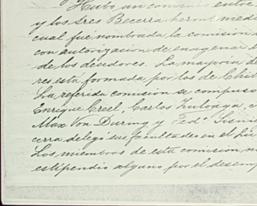 Hubo un convenio entre
y los Sres Becerra herms. med
cual fué nombrada la comisión
con autorización de enagenar
de los deudores. La mayoría de
res está formada por los de Chih
La referida comisión se compuso
Enrique Creel, Carlos Zuloaga,
Max Von During y Fedº. Sisni
cerra delegó sus facultades en el Lic
Los miembros de esta comisión, n
estipendio alguno por el desemp